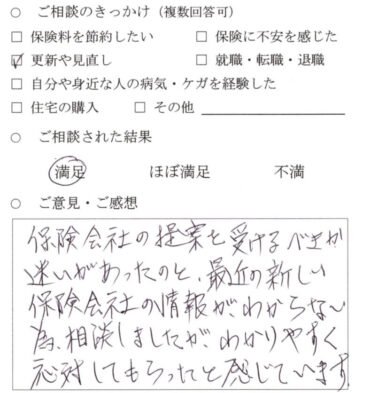 ○ ご相談のきっかけ(複数回答可)
□ 保険料を節約したい □ 保険に不安を感じた
☑ 更新や見直し □ 就職・転職・退職
□ 自分や身近な人の病気・ケガを経験した
□ 住宅の購入 □ その他
○ ご相談された結果
満足 ほぼ満足 不満
○ ご意見・ご感想
保険会社の提案を受けるべきか
迷いがあったのと、最近の新しい
保険会社の情報がわからない
為、相談しましたが、わかりやすく
応対してもらったと感じています。